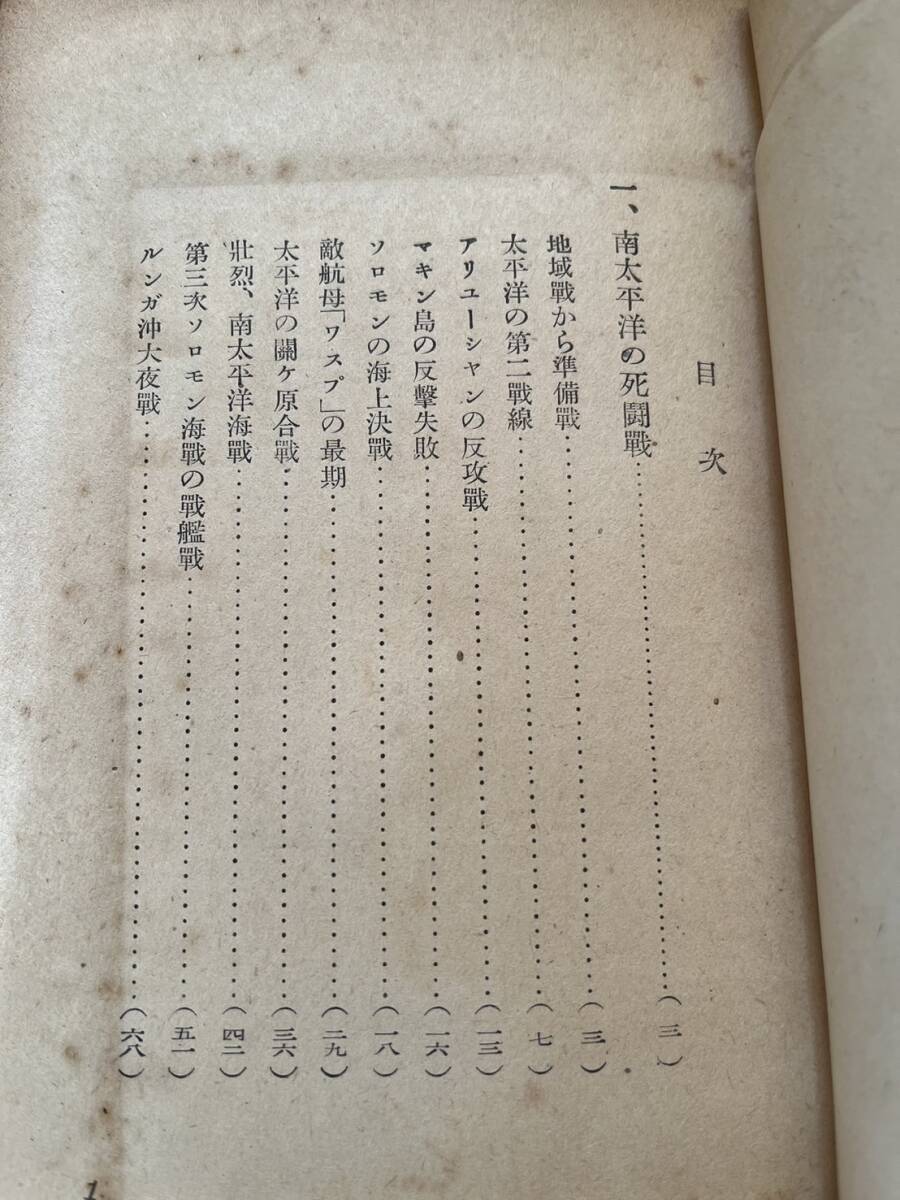 目次
一、南太平洋の死鬪戰……(三)
地域戰から準備戰……(三)
太平洋の第二戰線……(七)
アリユーシャンの反攻戰……(一三)
マキン島の反擊失敗……(一六)
ソロモンの海上決戰……(一八)
敵航母「ワスプ」の最期……(二九)
太平洋の關ケ原合戰……(三六)
壯烈、南太平洋海戰……(四二)
第三次ソロモン海戰の戰艦戰……(五一)
ルンガ沖大夜戰……(六八)
1